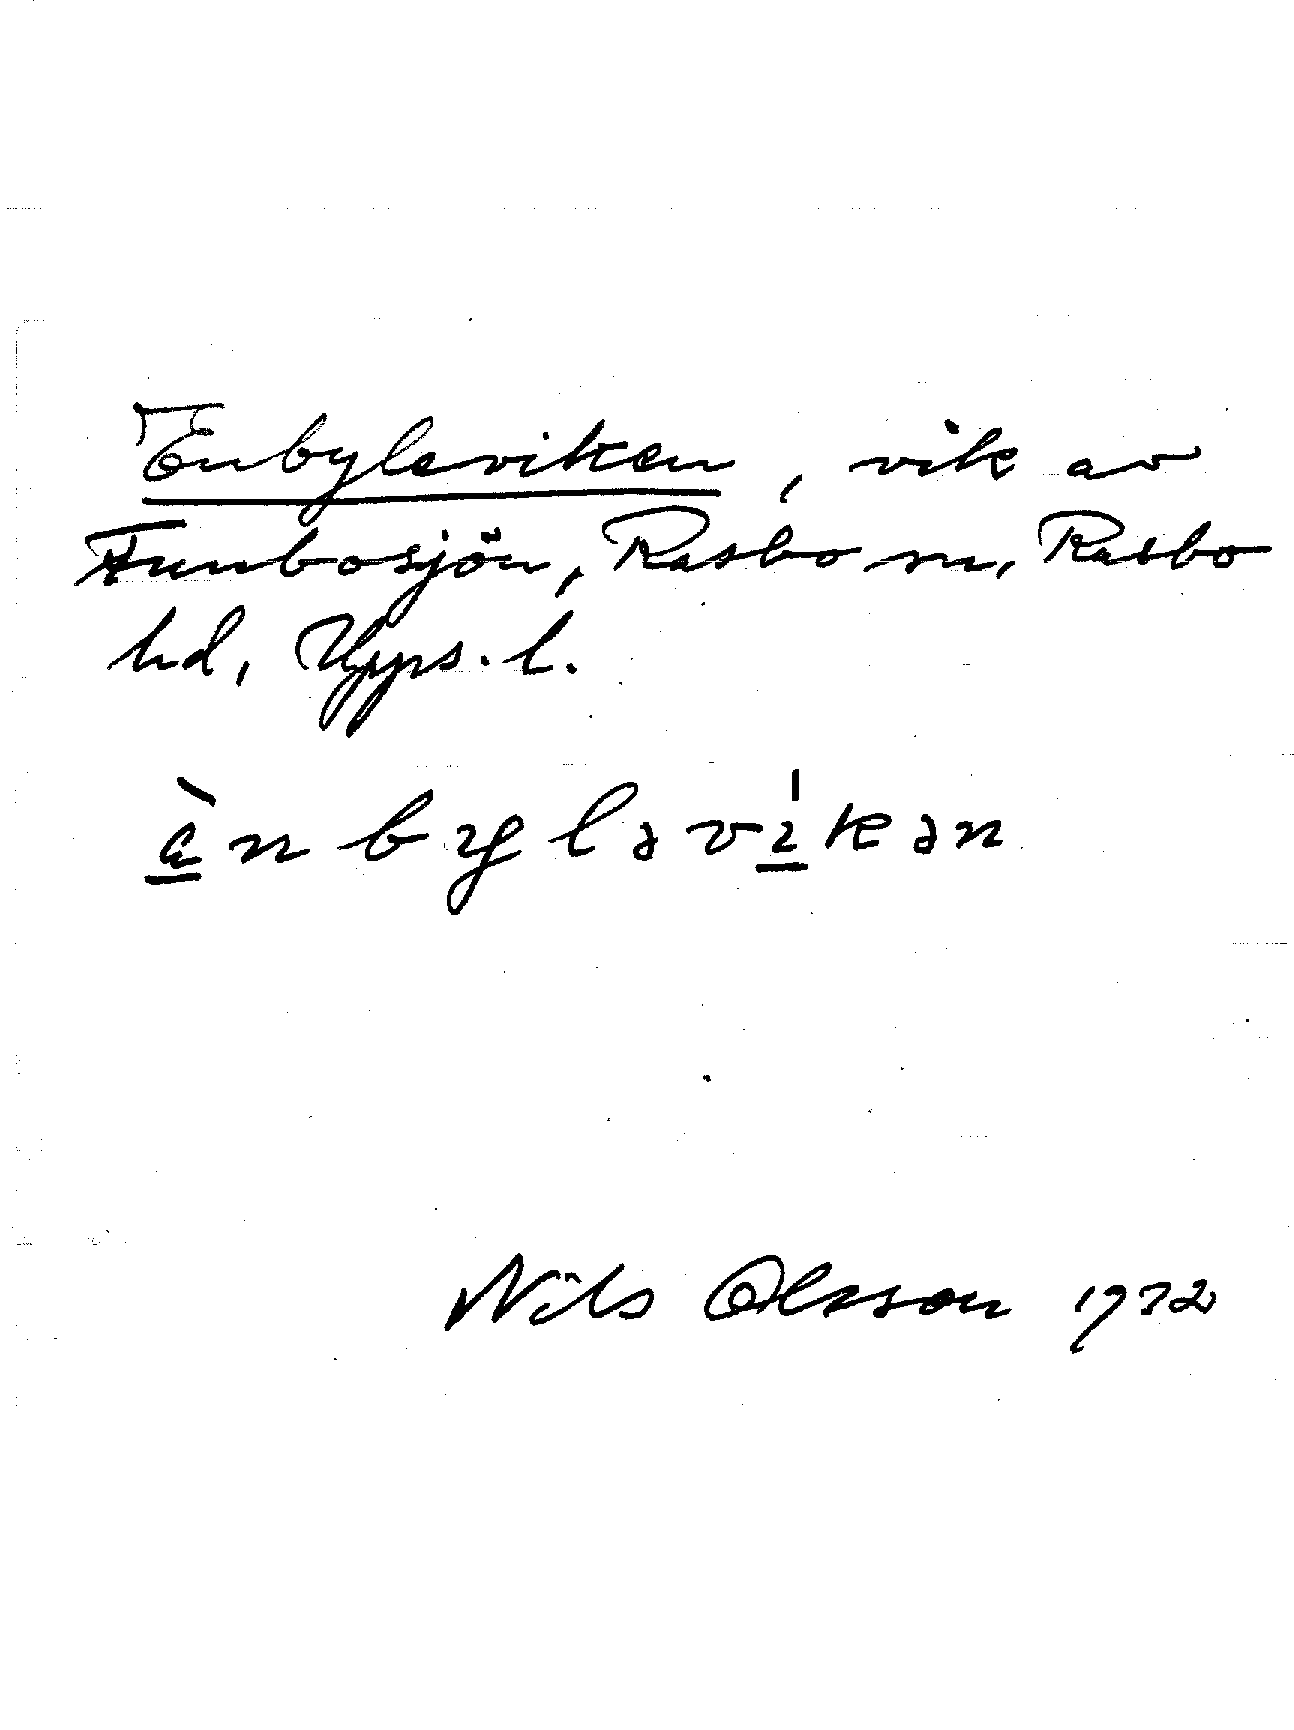 Enbyleviken, vik av
Funbosjön, Rasbo sn, Rasbo
hd, Upps. l.
ὲnbyləvíkən
Nils Olsson 1972